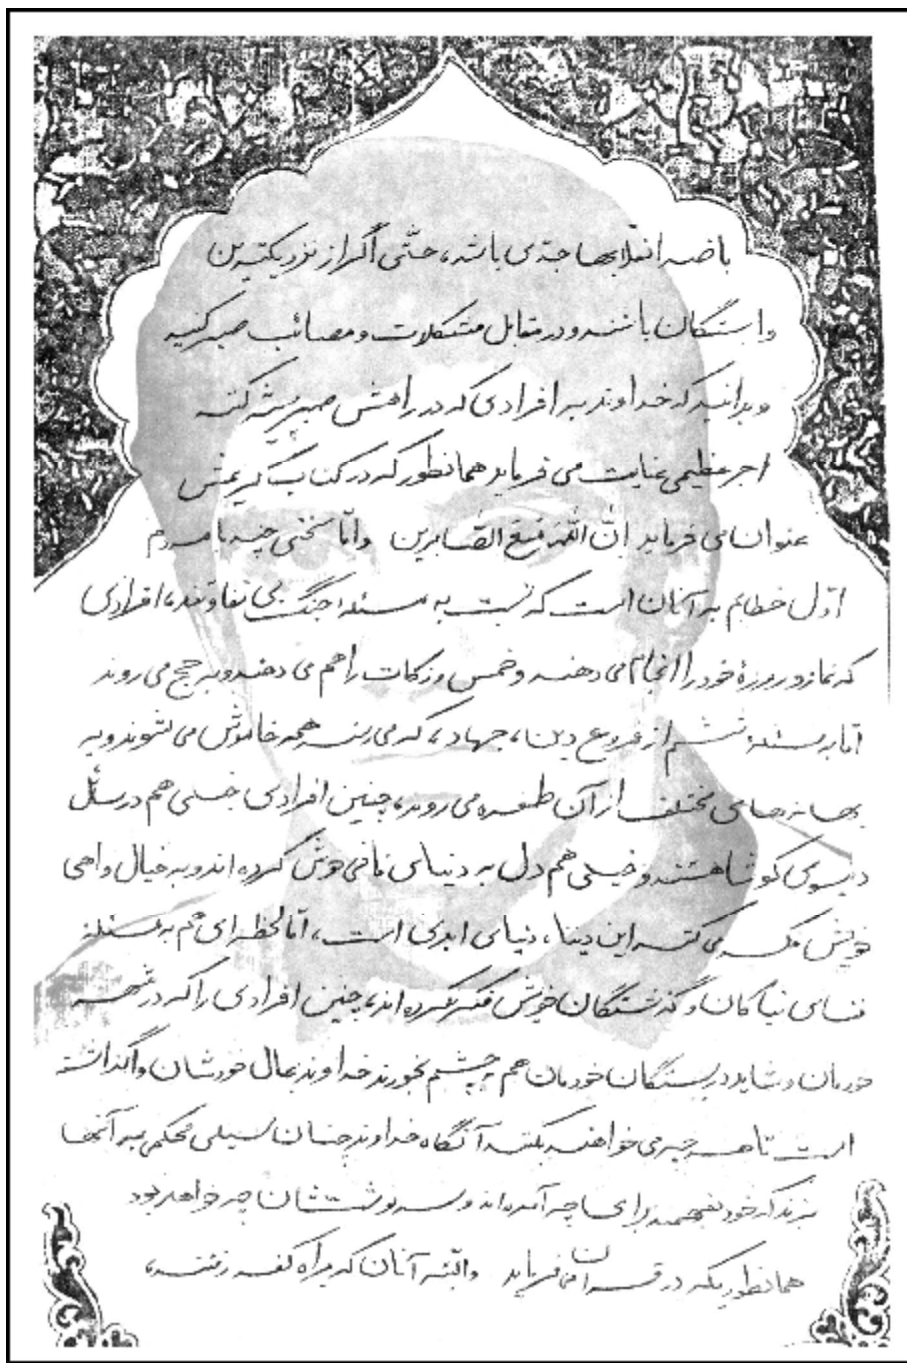 با ضد انقلابها جدّی باشد، حتّی اگر از نزدیکترین
وابستگان باشند و در مقابل مشکلات و مصائب صبر کنید
و بدانید که خداوند به افرادی که در راهش صبر پیشه کنند
اجر عظیمی عنایت می فرماید همانطور که در کتاب کریمش
عنوان می فرماید انّ اللّه مَعَ الصّابرین و امّا سخنی چند با مردم
اوّل خطابم به آنان است که نسبت به مسئله جنگ بی تفاوتند، افرادی
که نماز و روزهٔ خود را انجام می دهند و خمس و زکات را هم می دهند و به حج می روند
امّا به مسئلهٔ ششم از فروع دین، جهاد، که می رسند همه خاموش می شوند و به
بهانه های مختلف از آن طفره می روند، چنین افرادی خیلی هم در مسائل
دنیوی کوشا هستند و خیلی هم دل به دنیای فانی خوش کرده اند و به خیال واهی
خویش فکر می کنند این دنیا، دنیای ابدی است، امّا لحظه ای هم به مسئلهٔ
فنای نیاکان و گذشتگان خویش فکر نکرده اند، چنین افرادی را که در شهر
خودمان و شاید در بستگان خودمان هم به چشم بخورند خداوند بحال خودشان واگذاشته
است تا هر چه می خواهند بکنند آنگاه خداوند چنان سیلی محکمی به آنها
بزند که خود بفهمند برای چه آمده اند و سرنوشتشان چه خواهد بود
همانطوریکه در قرآن می فرماید والبته آنان که براه کفر رفتند،